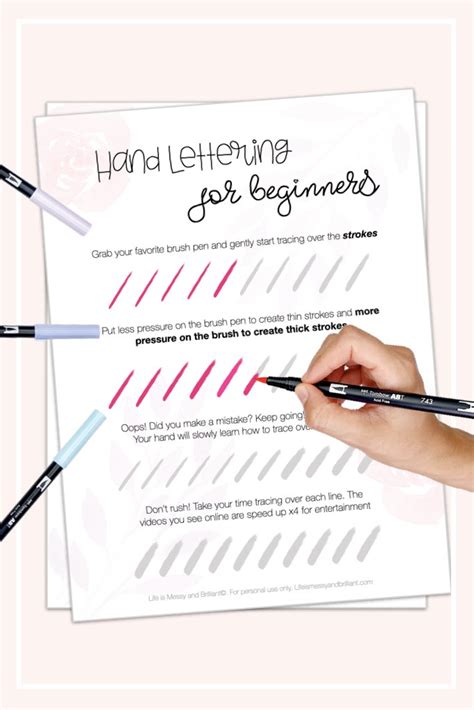 Hand Lettering
for beginners
Grab your favorite brush pen and gently start tracing over the strokes
Put less pressure on the brush pen to create thin strokes and more
pressure on the brush to create thick strokes.
Oops! Did you make a mistake? Keep going!
Your hand will slowly learn how to trace over
Don't rush! Take your time tracing over each line. The
videos you see online are speed up x4 for entertainment
Life is Messy and Brilliant©. For personal use only. Lifeismessyandbrilliant.com
Tombow ABT
Acid Free
743